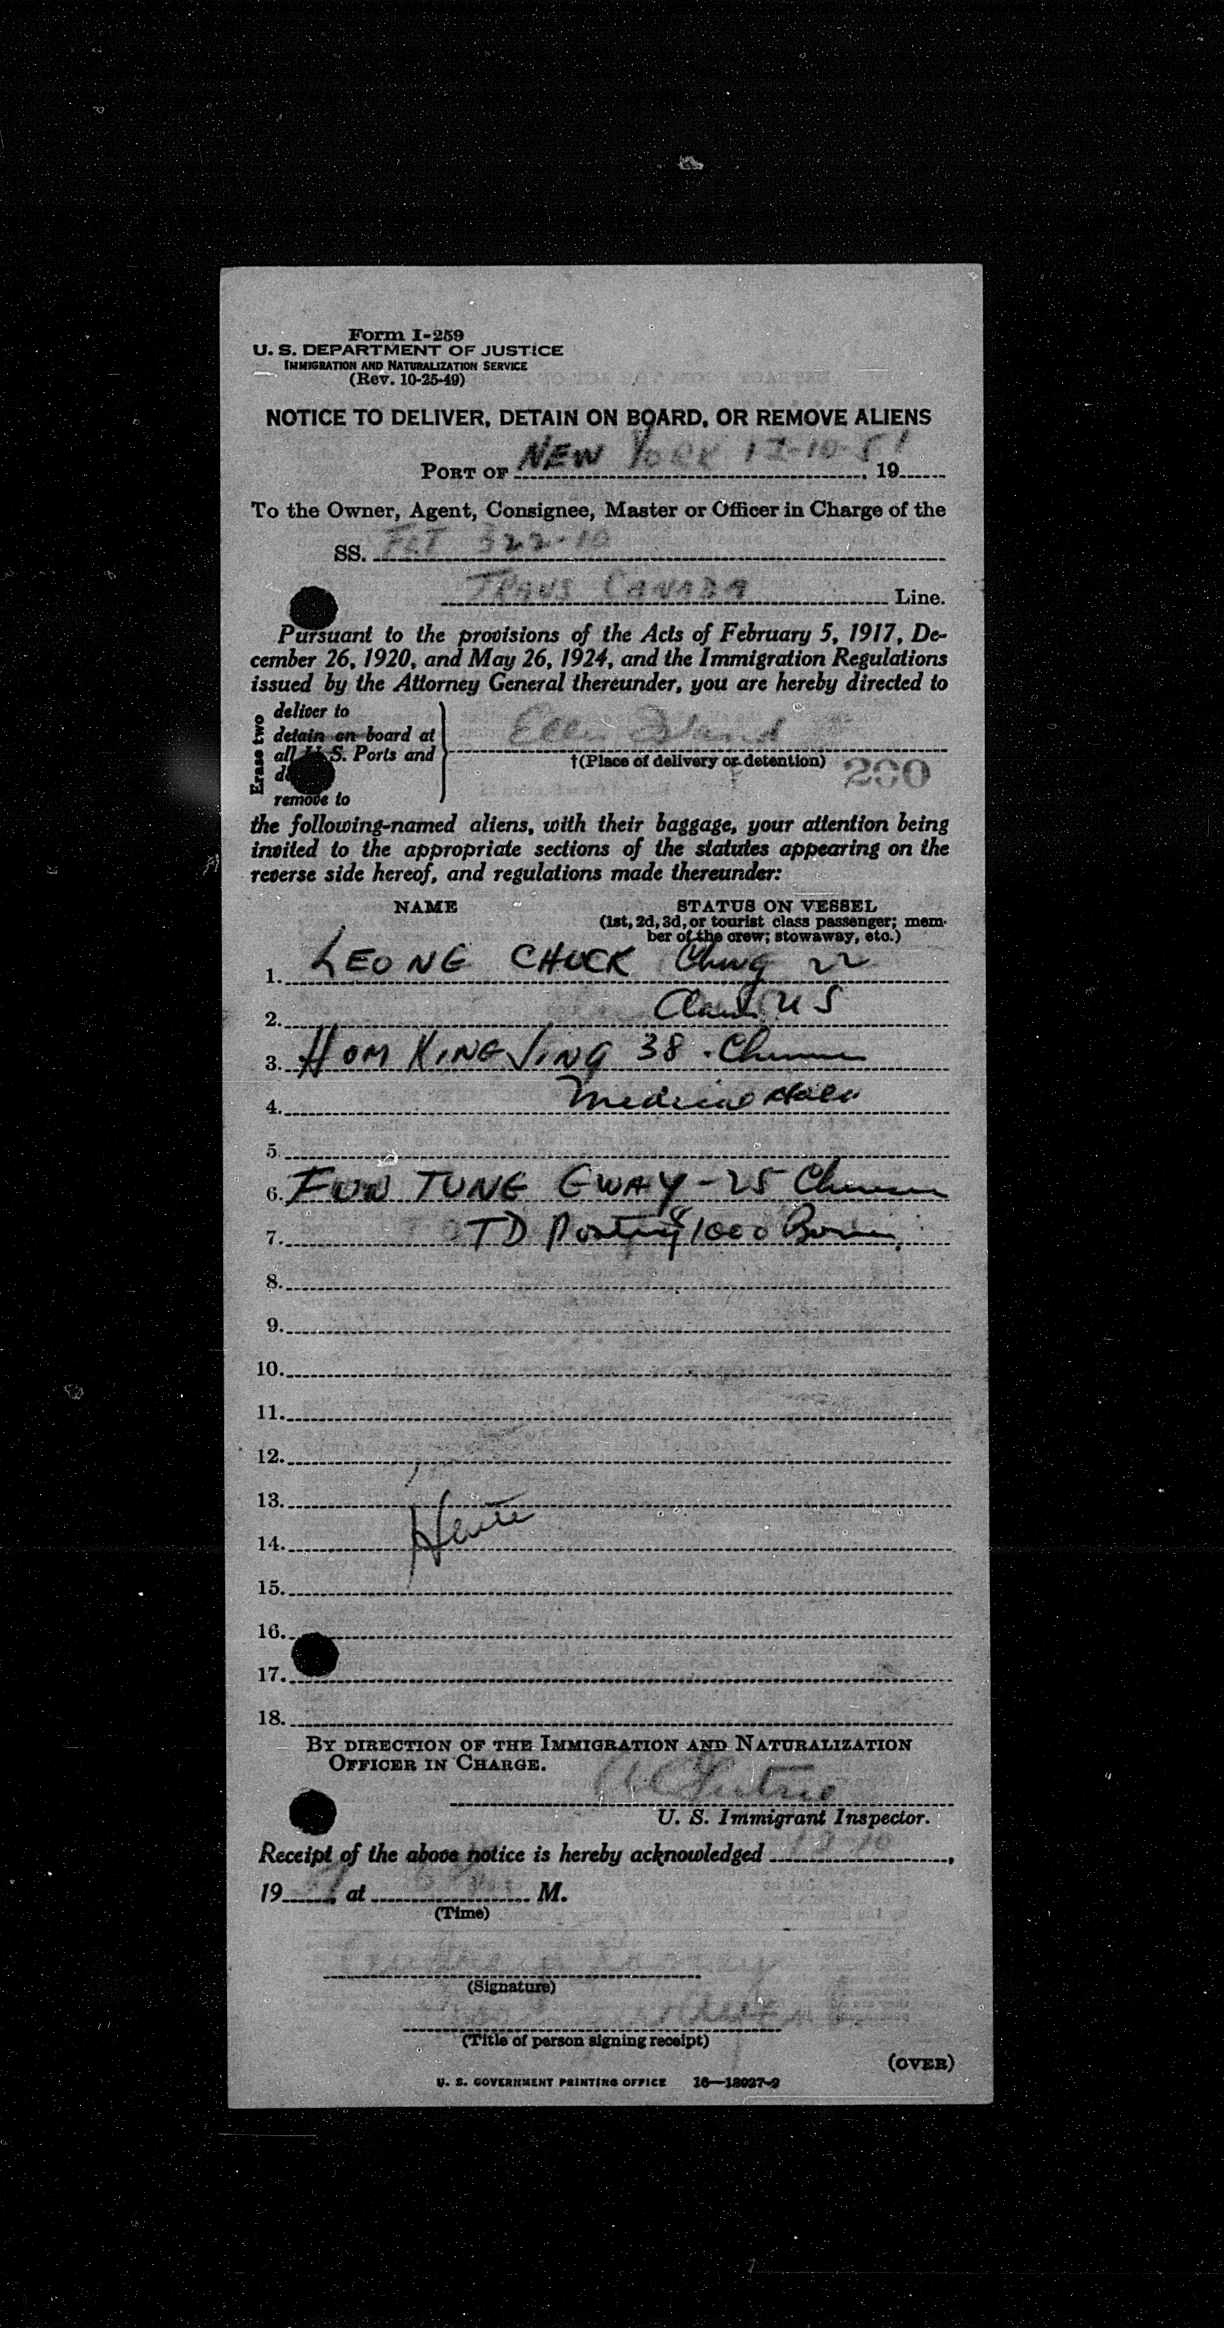 Form I-259
U. S. DEPARTMENT OF JUSTICE
IMMIGRATION AND NATURALIZATION SERVICE
(Rev. 10-25-49)
NOTICE TO DELIVER, DETAIN ON BOARD, OR REMOVE ALIENS
PORT OF NEW YORK 12-10-51, 19
To the Owner, Agent, Consignee, Master or Officer in Charge of the
SS. FLT 322-10
TRANS CANADA Line.
Pursuant to the provisions of the Acts of February 5, 1917, De-
cember 26, 1920, and May 26, 1924, and the Immigration Regulations
issued by the Attorney General thereunder, you are hereby directed to
Erase two
deliver to
detain on board at
all U. S. Ports and
remove to
Ellis Island
†(Place of delivery or detention)
200
the following-named aliens, with their baggage, your attention being
invited to the appropriate sections of the statutes appearing on the
reverse side hereof, and regulations made thereunder:
NAME STATUS ON VESSEL
(1st, 2d, 3d, or tourist class passenger; mem-
ber of the crew; stowaway, etc.)
1. LEONG CHUCK Chung 22
2. Claim US
3. HOM KING JING 38 - Chinese
4. Medical Hold
5.
6. FUN TUNG GWAY - 25 Chinese
7. TD Posting 1000
8.
9.
10.
11.
12.
13.
14.
15.
16.
17.
18.
BY DIRECTION OF THE IMMIGRATION AND NATURALIZATION
OFFICER IN CHARGE.
U. S. Immigrant Inspector.
Receipt of the above notice is hereby acknowledged 12-10,
19 51, at M.
(Time)
(Signature)
(Title of person signing receipt)
(OVER)
U. S. GOVERNMENT PRINTING OFFICE 16—18027-2